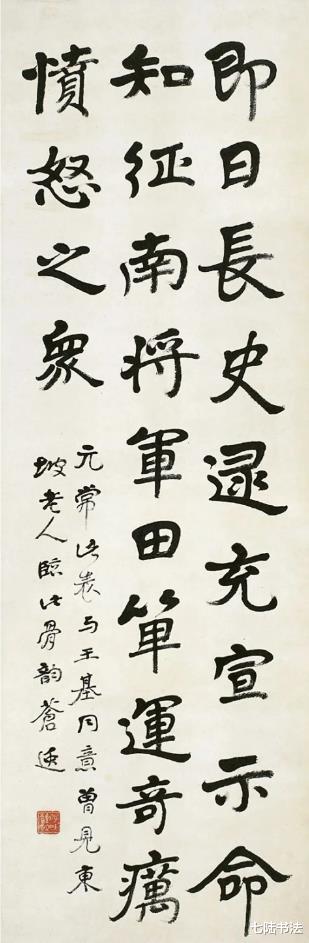 即日長史逯充宣示命
知征南将軍田單運奇厲
憤怒之衆
元常此表与王基同意曾見東
坡老人臨此骨韵蒼逸
七陆书法